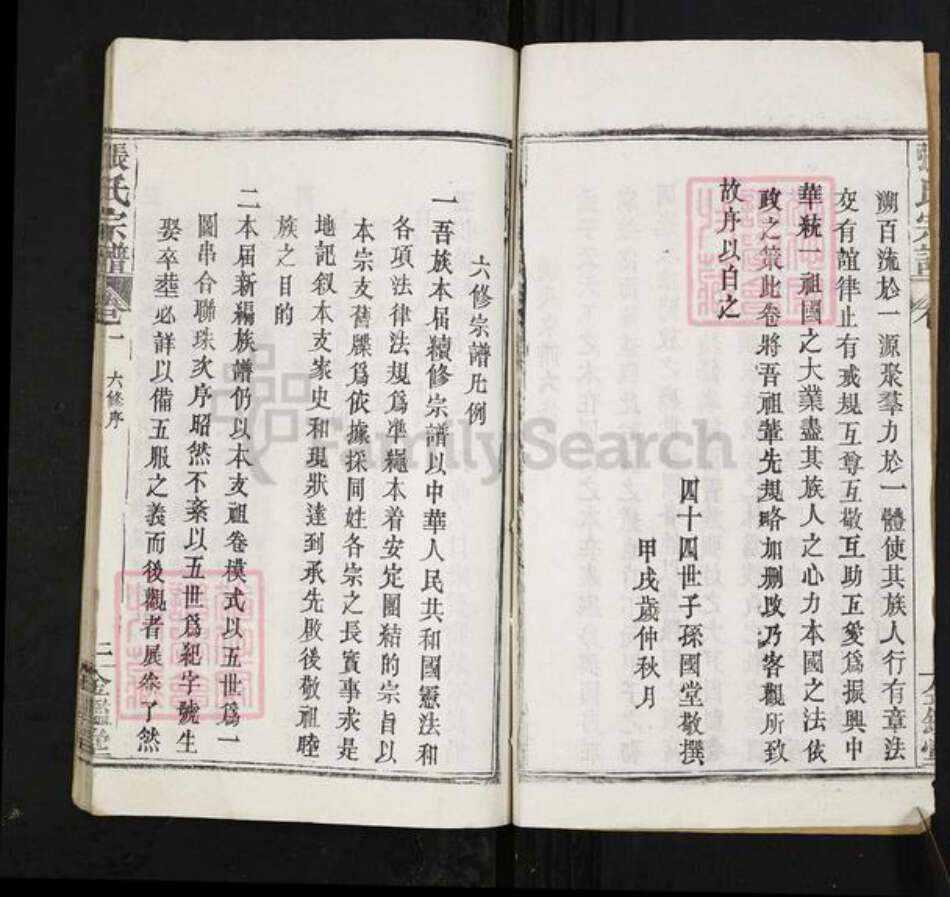 溯百流於一源聚羣力於一體使其族人行有章法
交有誼律止有戒規互尊互敬互助互愛爲振興中
華統一祖國之大業盡其族人之心力本國之法依
政之策此卷將吾祖輩先規略加删改乃客觀所致
故序以自之
四十四世子孫國堂敬撰
甲戌歲仲秋月
六修宗譜凡例
一吾族本届續修宗譜以中華人民共和國憲法和
各項法律法規爲準繩本着安定團結的宗旨以
本宗支舊牒爲依據採同姓各宗之長實事求是
地記叙本支家史和現狀達到承先啟後敬祖睦
族之目的
二本届新編族譜仍以本支祖卷模式以五世爲一
圖串合聯珠次序昭然不紊以五世爲紀字號生
娶卒塟必詳以備五服之義而後觀者展卷了然
張氏宗譜 卷一 六修序 二 金鑑堂
FamilySearch